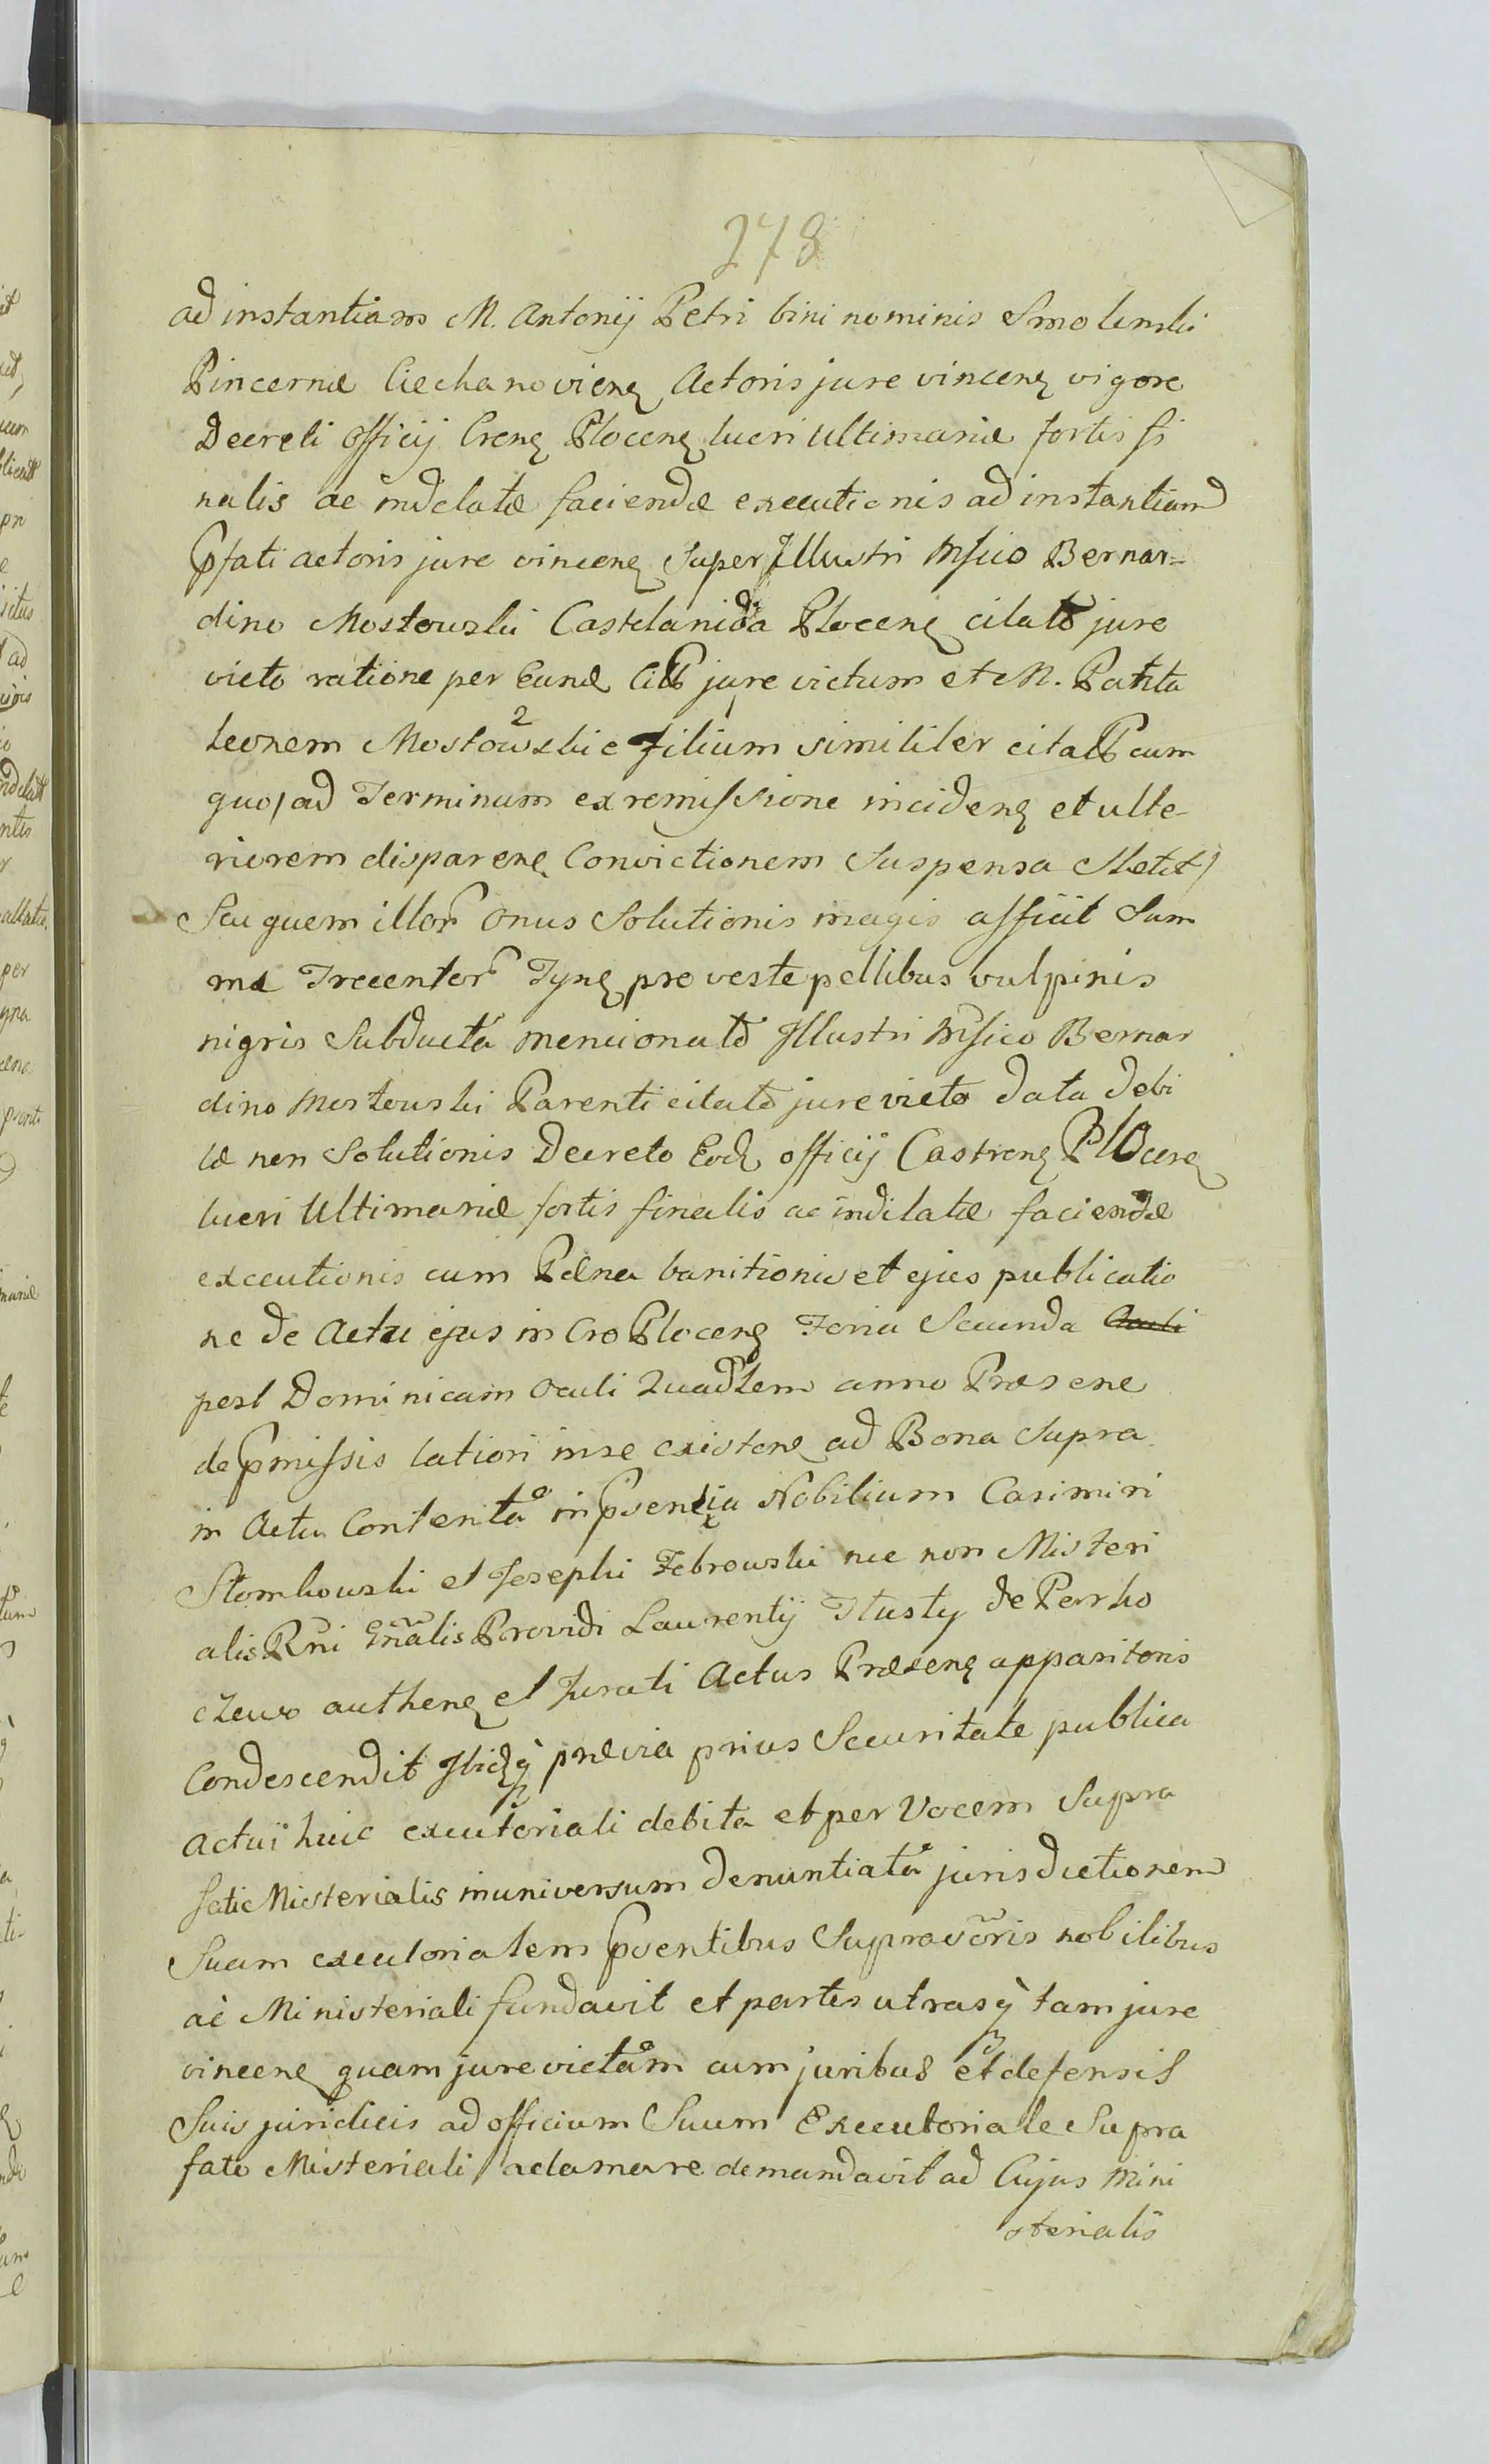 278
ad instantiam M. Antonij Petri bini nominis Smolenski
Pincernæ Ciechanovienę Actoris jure vincenę vigore
Decreti Officij Crenę Plocenę lucri Ultimariæ fortis fi
nalis ac indelatæ faciendæ executionis ad instantiam
Pfati actoris jure vincenę Super Illustri Mfico Bernar=
dino Mostowski Castelanida Plocenę citato jure
victo ratione per Eund jure victum et M. Panta
leonem Mostowskie filium similiter cum
quo/ad Terminum ex remissione incidenę et ulte-
riorem disparenę Convictionem Suspensa Stetit/
Seu quem illor Onus Solutionis magis afficit Sum
ma Trecentor Tynę pro veste pellibus vulpinis
nigris Subducta mencionato Illustri Mfico Bernar
dino Mostouski Parenti citato jure victo data debi
tæ non Solutionis Decreto Eodę officij Castrenę Plocenę
lucri Ultimariæ fortis finalis ac indilatæ faciendæ
executionis cum Pæna banitionis et ejus publicatio
ne de Actu ejus in Cro Plocenę Feria Secunda
post Dominicam Oculi Quadlem anno Præsene
de Pmissis latiori in se existenę ad Bona Supra
in Actu Contenta in Psentia Nobilium Casimiri
Stomkouski et Josephi Zebrowski nec non Misteri
alis Rni Gnalis Providi Laurentij Tlusty de Parko
czewo authenę et Jurati Actus Præsenę apparitoris
Condescendit Ibidę prævia prius Securitate publica
actui huic executoriali debita et per Vocem Supra
fati Misterialis in universum denuntiata jurisdictionem
Suam executorialem Psentibus Supravoris nobilibus
ac Ministeriali fundavit et partes utrasq tam jure
vincenę quam jure victam cum juribus et defensis
Suis juridicis ad officium Suum Executoriale Supra
fato Misteriali aclamare demandavit ad Cujus Mini
sterialis